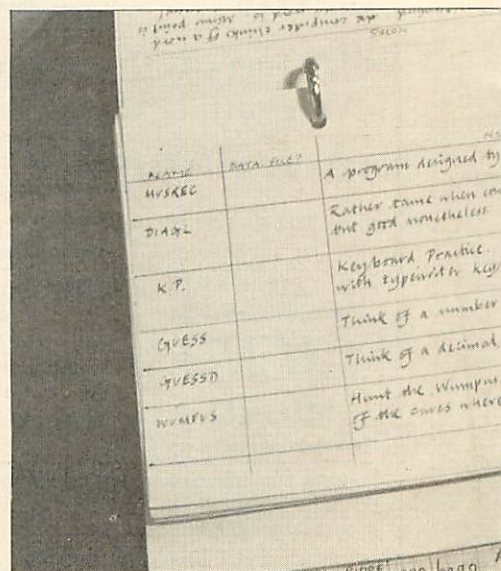 the computer thinks of a word
NOTES
NAME DATA FILE?
MUSREC A program designed
DIAGL Rather tame when
but good nonetheless
K.P. Keyboard Practice.
with typewriter
GUESS Think of a number
GUESSD Think of a decimal
WUMPUS Hunt the Wumpus
of the caves where